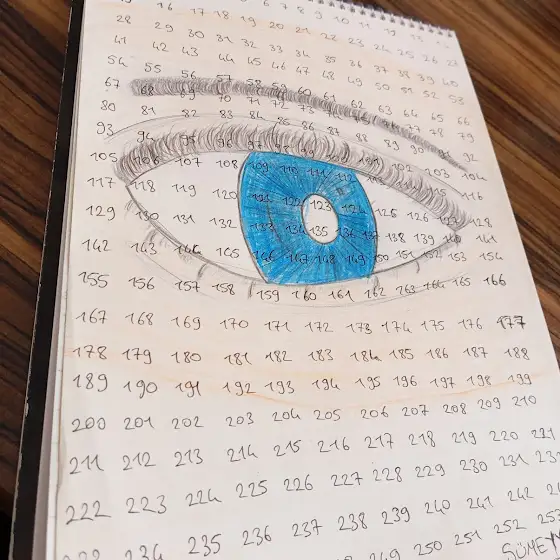 16 17 18 19 20 21 22 23 24 25 26 27
28 29 30 31 32 33 34 35 36 37 38 39 40
41 42 43 44 45 46 47 48 49 50 51 52 53
54 55 56 57 58 59 60 61 62 63 64 65 66
67 68 69 70 71 72 73 77 78 79
80 81 82 83 84 85 86 87 88 89 90 91 92
93 94 95 96 97 98 99 100 101 102 103 104
105 106 107 108 109 110 111 112 115 116
117 118 119 120 121 122 123 124 125 126 127 128
129 130 131 132 133 134 135 136 137 138 139 140 141
142 143 144 145 146 147 148 149 150 151 152 153 154
155 156 157 158 159 160 161 162 163 164 165 166
167 168 169 170 171 172 173 174 175 176 177
178 179 180 181 182 183 184 185 186 187 188
189 190 191 192 193 194 195 196 197 198 199
200 201 202 203 204 205 206 207 208 209 210
211 212 213 214 215 216 217 218 219 220 221
222 223 224 225 226 227 228 229 230 231 232
234 235 236 237 238 239 240 241 242
250 251 252 253
SÜMEY